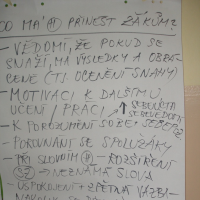 CO MÁ (H) PŘINÉST ŽÁKŮM?
- VĚDOMÍ, ŽE POKUD SE
SNAŽÍ, MÁ VÝSLEDKY A OSOBE
CENĚ (TJ OCENĚNÍ SNAHY)
- MOTIVACI K DALŠÍMU
UČENÍ / PRÁCI ↑ SEBEÚCTA SEBEVĚDOMÍ
- K POROZUMĚNÍ SOBĚ, SEBEPOZ
- POROVNÁNÍ SE SPOLUŽÁKY
- PŘI SLOVNÍM (H) - ROZŠÍŘENÍ
SZ - NEZNÁMÁ SLOVA
- USPOKOJENÍ + ZPĚTNÁ VAZBA -